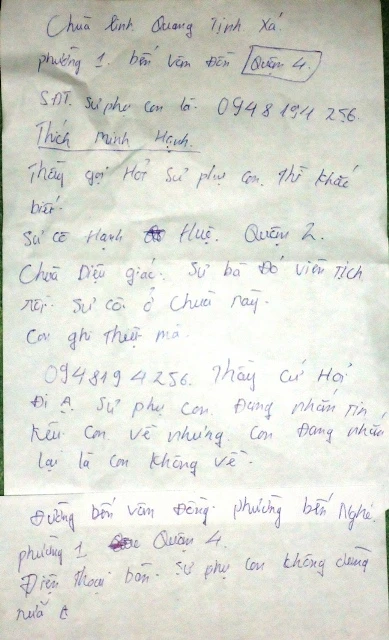 Chùa linh Quang Tịnh Xá
phường 1. bến vân đồn Quận 4.
SĐT. Sư phụ con là. 0948 194 256.
Thích Minh Hạnh.
Thầy gọi Hỏi Sư phụ con. thì khắc
biết.
Sư cô Hạnh Huệ. Quận 2.
Chùa Diệu giác. Sư bà Đó viên tịch
rồi. Sư cô ở Chùa này.
Con ghi Thiệt mà.
0948194256. Thầy cứ Hỏi
Đi ạ. Sư phụ con. Đang nhắn tin
Kêu con về nhưng. Con Đang nhắn
lại là con không về.
Đường bến vân Đồng. phường bến Nghé.
phường 1 Quận 4.
Điện thoại bàn. Sư phụ con không dùng
nữa ạ